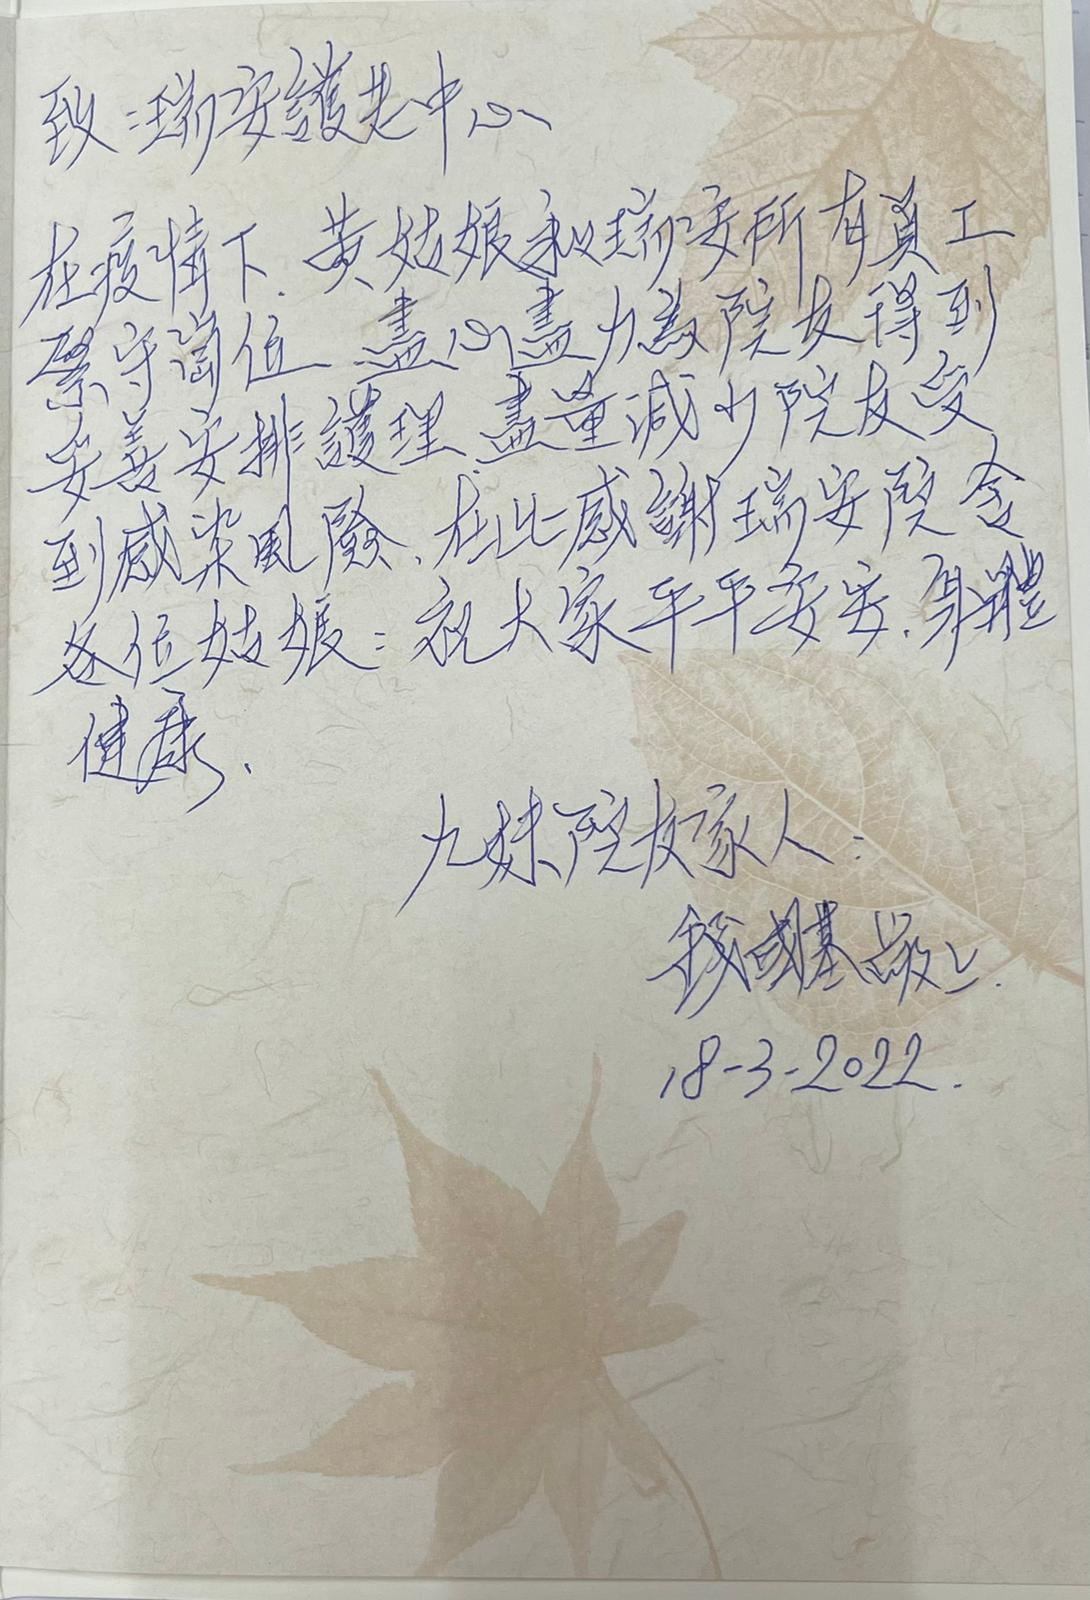 致：瑞安護老中心
在疫情下．黃姑娘和瑞安所有員工
緊守崗位 盡心盡力為院友得到
妥善安排護理 盡量減少院友受
到感染風險．在此感謝瑞安院舍
各位姑娘：祝大家平平安安．身體
健康．
九妹院友家人：
錢國基敬上．
18-3-2022．